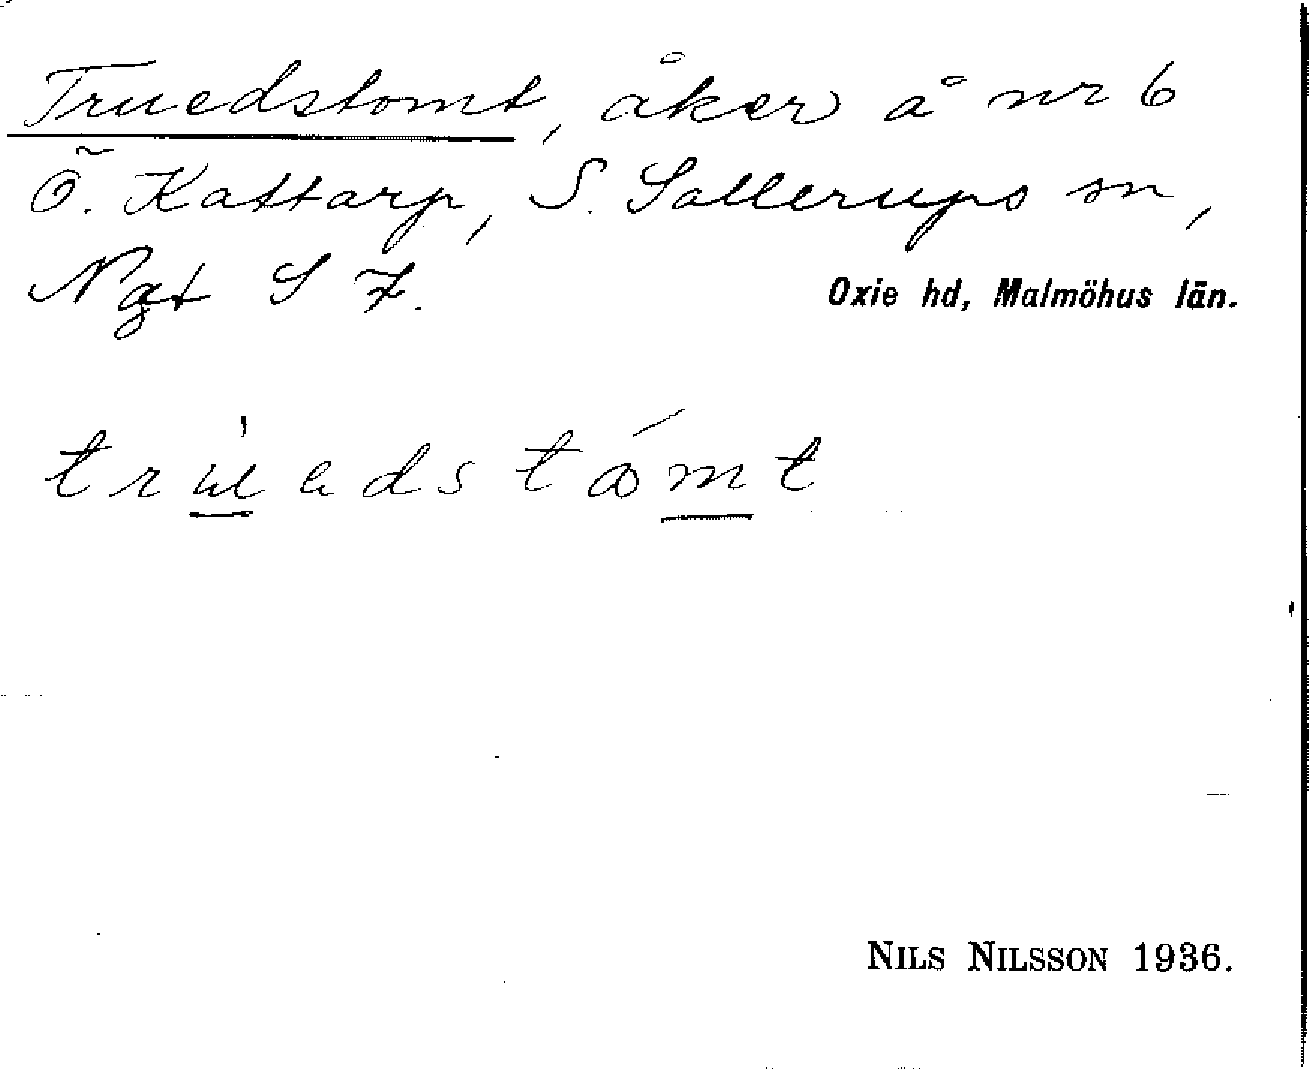 Truedstomt, åker å nr 6
Ö. Kattarp, S. Sallerups sn,
Ngt S 7. Oxie hd, Malmöhus län.
trùedstómt
NILS NILSSON 1936.